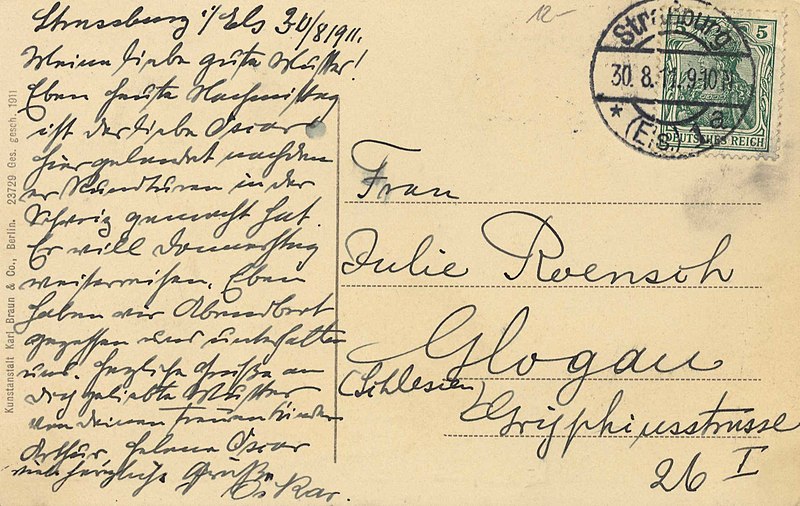 Strassburg i/Els 30/8 1911.
Meine liebe gute Mutter!
Eben heute Nachmittag
ist der liebe Oscar
hier gelandet nachdem
er Rundturen in der
Schweiz gemacht hat.
Er will Donnerstag
weiterreisen. Eben
haben wir Abendbrot
gegessen und unterhalten
uns. Herzliche Grüße an
Dich geliebte Mutter
von deinen treuen Kindern
Arthur, Helene Oscar
viele herzliche Grüße
Oskar.
Kunstanstalt Karl Braun & Co., Berlin. 23729 Ges. gesch. 1911
12-
Strassburg
30. 8. 11. 9-10 N
* (Els.) 1 a
5
DEUTSCHES REICH
Frau
Julie Roensch
Glogau
(Schlesien)
Gryphiusstrasse
26 I